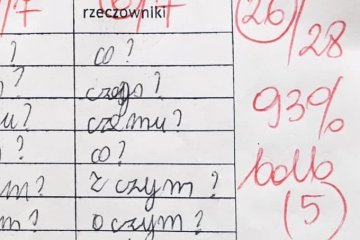 /7 /7
rzeczowniki 26/28
? co?
? czego? 93%
u? czemu?
? co? bdb
m? z czym? (5)
m? o czym?